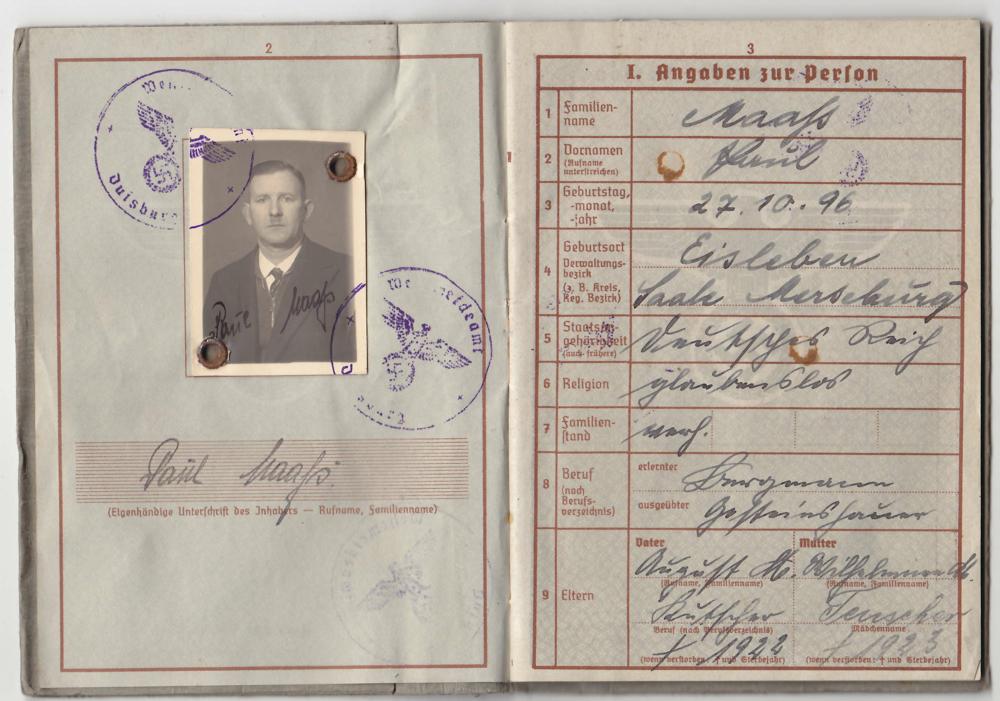 2
Duisburg
Paul Maaß
Paul Maaß.
(Eigenhändige Unterschrift des Inhabers — Rufname, Familienname)
3
I. Angaben zur Person
1 Familien-
name
Maaß
2 Vornamen
(Rufname
unterstreichen)
Paul
3 Geburtstag,
-monat,
-jahr
27. 10. 96
4 Geburtsort
Verwaltungs-
bezirk
(z. B. Kreis,
Reg. Bezirk)
Eisleben
Saale Merseburg
5 Staatsan-
gehörigkeit
(auch frühere)
Deutsches Reich
6 Religion
glaubenslos
7 Familien-
stand
verh.
8 Beruf
(nach
Berufs-
verzeichnis)
erlernter
Bergmann
ausgeübter
Gesteinshauer
9 Eltern
Vater
August M.
(Rufname, Familienname)
Kutscher
Beruf (nach Berufsverzeichnis)
† 1922
(wenn verstorben: † und Sterbejahr)
Mutter
Wilhelmine M.
(Rufname, Familienname)
Teuscher
Mädchenname
† 1923
(wenn verstorben: † und Sterbejahr)